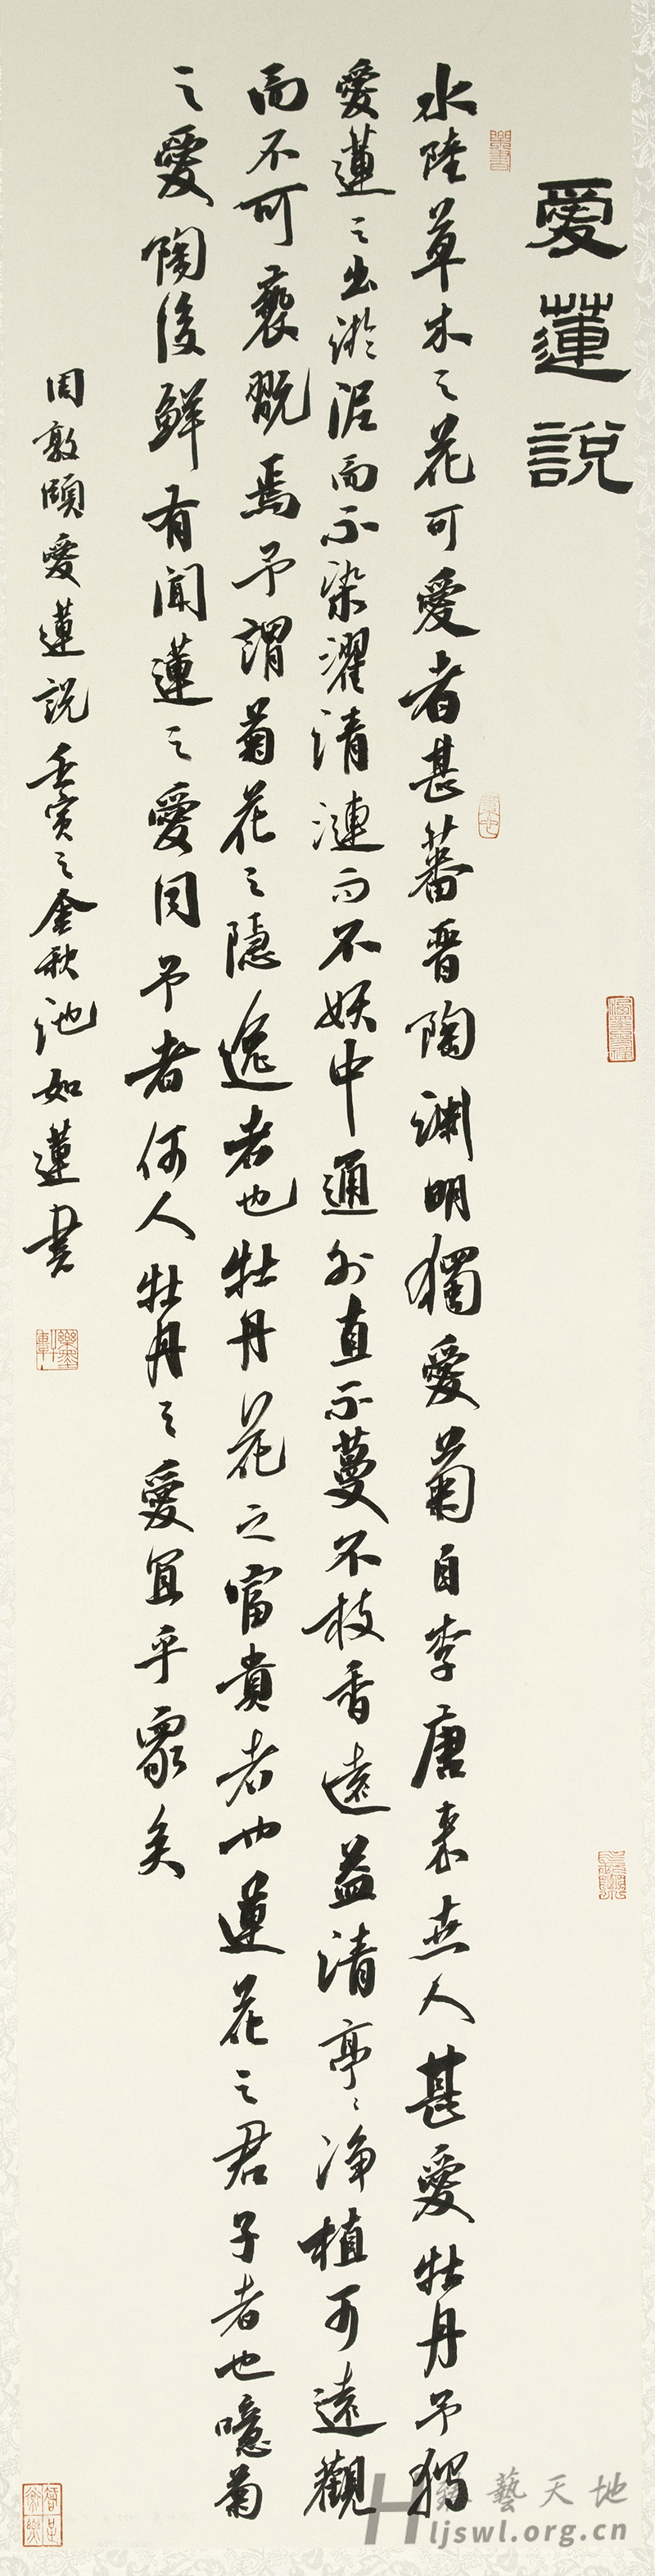 愛蓮說
水陸草木之花可愛者甚蕃晉陶渊明獨愛菊自李唐來世人甚愛牡丹予獨
愛蓮之出淤泥而不染濯清漣而不妖中通外直不蔓不枝香遠益清亭〻净植可遠觀
而不可褻翫焉予謂菊花之隱逸者也牡丹花之富貴者也蓮花之君子者也噫菊
之愛陶後鮮有聞蓮之愛同予者何人牡丹之愛宜乎眾矣
周敦頤愛蓮説壬寅之金秋池如蓮書
藝天地
ljswl.org.cn